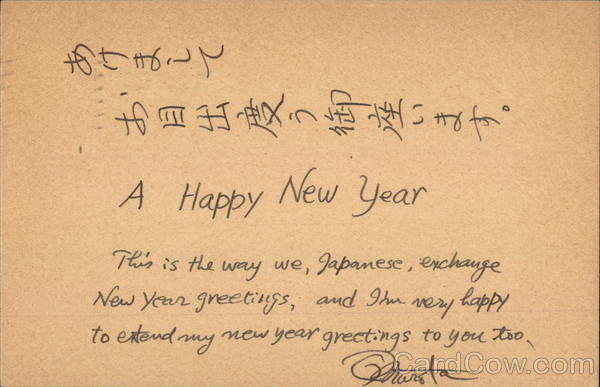 あけまして
お目出度う御座います。
A Happy New Year
This is the way we, Japanese, exchange
New Year greetings, and I'm very happy
to extend my new year greetings to you too.
CardCow.com